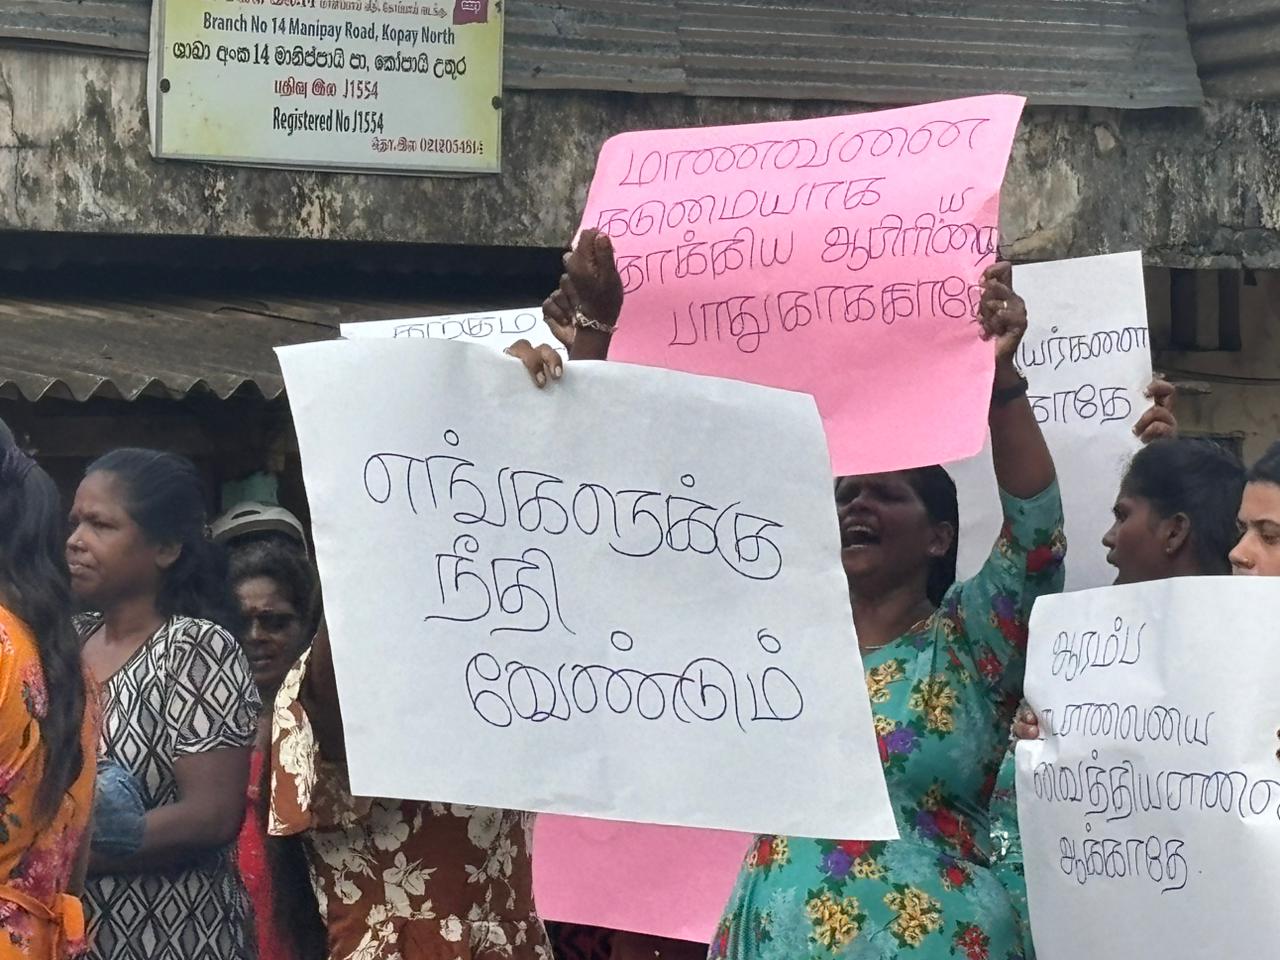 Branch No 14 Manipay Road, Kopay North
ශාඛා අංක 14 මානිප්පායි පා, කෝපායි උතුර
பதிவு இல J1554
Registered No J1554
தொ.இல
மாணவனை
கடுமையாக
தாக்கிய
பாதுகாககாதே
கற்கும்
யர்களை
காதே
எங்களுக்கு
நீதி
வேண்டும்
ஆரம்ப
வைத்தியசாலை
ஆக்காதே.